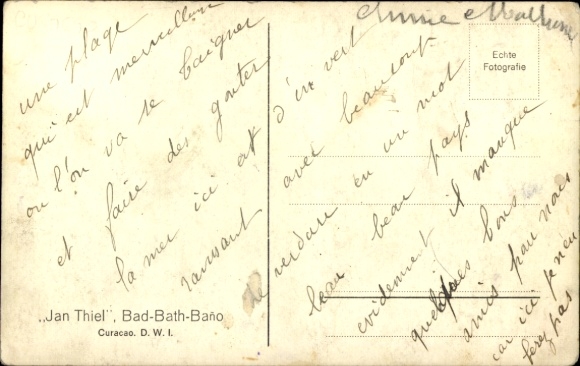 une plage
qui est merveilleuse
ou l'on va se baigner
et faire des gouter
la mer ici est
ravissant
d'un vert
avec beaucoup
de verdure en un mot
beau beau pays
evidement il manque
quelques bons
amis pour nous
car ici je n'en
ferez pas
Echte
Fotografie
„Jan Thiel", Bad-Bath-Baño
Curacao. D. W. I.